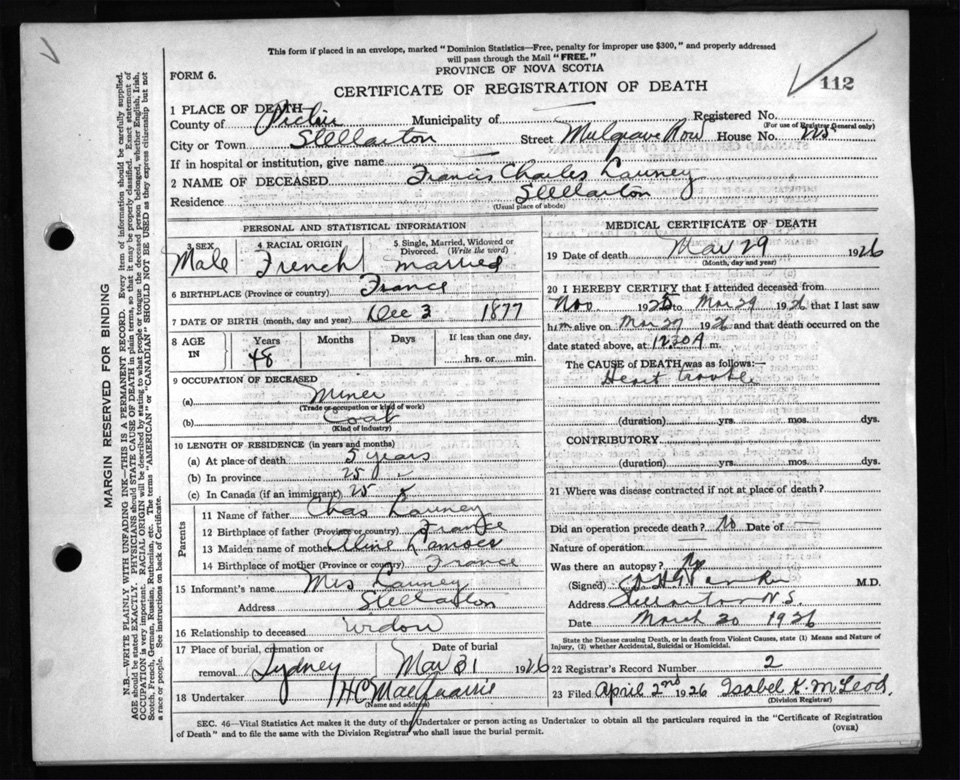 This form if placed in an envelope, marked "Dominion Statistics—Free, penalty for improper use $300," and properly addressed
will pass through the Mail "FREE."
FORM 6.
PROVINCE OF NOVA SCOTIA
CERTIFICATE OF REGISTRATION OF DEATH
112
1 PLACE OF DEATH—
County of Pictou Municipality of — Registered No.
(For use of Registrar General only)
City or Town Stellarton Street Mulgrave Row House No.
If in hospital or institution, give name —
2 NAME OF DECEASED Francis Charles Launey
Residence Stellarton
(Usual place of abode)
PERSONAL AND STATISTICAL INFORMATION
3 SEX Male
4 RACIAL ORIGIN French
5 Single, Married, Widowed or Divorced. (Write the word) married
6 BIRTHPLACE (Province or country) France
7 DATE OF BIRTH (month, day and year) Dec 3 1877
8 AGE IN Years 48 Months Days If less than one day, hrs. or min.
9 OCCUPATION OF DECEASED
(a) Miner
(Trade or occupation or kind of work)
(b) Coal
(Kind of industry)
10 LENGTH OF RESIDENCE (in years and months)
(a) At place of death 5 years
(b) In province 25
(c) In Canada (if an immigrant) 25
Parents
11 Name of father Chas Launey
12 Birthplace of father (Province or country) France
13 Maiden name of mother
14 Birthplace of mother (Province or country) France
15 Informant's name Mrs Launey
Address Stellarton
16 Relationship to deceased Widow
17 Place of burial, cremation or removal Sydney
Date of burial Mar 31 1926
18 Undertaker H C MacQuarrie
(Name and address)
MEDICAL CERTIFICATE OF DEATH
19 Date of death Mar 29 1926
(Month, day and year)
20 I HEREBY CERTIFY that I attended deceased from
Nov 1925 to Mar 29 1926 that I last saw
him alive on Mar 29 1926 and that death occurred on the
date stated above, at 12 30 A m.
The CAUSE OF DEATH was as follows:
Heart trouble
(duration) yrs. mos. dys.
CONTRIBUTORY
(duration) yrs. mos. dys.
21 Where was disease contracted if not at place of death?
Did an operation precede death? No Date of —
Nature of operation —
Was there an autopsy? No
(Signed) M.D.
Address Stellarton N.S.
Date March 30 1926
State the Disease causing Death, or in death from Violent Causes, state (1) Means and Nature of
Injury, (2) whether Accidental, Suicidal or Homicidal.
22 Registrar's Record Number 2
23 Filed April 2nd 1926 Isabel K. McLeod.
(Division Registrar)
SEC. 46—Vital Statistics Act makes it the duty of the Undertaker or person acting as Undertaker to obtain all the particulars required in the "Certificate of Registration
of Death" and to file the same with the Division Registrar who shall issue the burial permit.
(OVER)
MARGIN RESERVED FOR BINDING
N.B.—WRITE PLAINLY WITH UNFADING INK—THIS IS A PERMANENT RECORD. Every item of information should be carefully supplied.
AGE should be stated EXACTLY. PHYSICIANS should STATE CAUSE OF DEATH in plain terms, so that it may be properly classified. Exact statement of
OCCUPATION is very important. RACIAL ORIGIN will be described by stating to what people or tongue the deceased person belonged, whether English, Irish,
Scotch, French, German, Russian, Ruthenian, etc. The terms "AMERICAN" or "CANADIAN" SHOULD NOT BE USED as they express citizenship but not
a race or people. See instructions on back of Certificate.